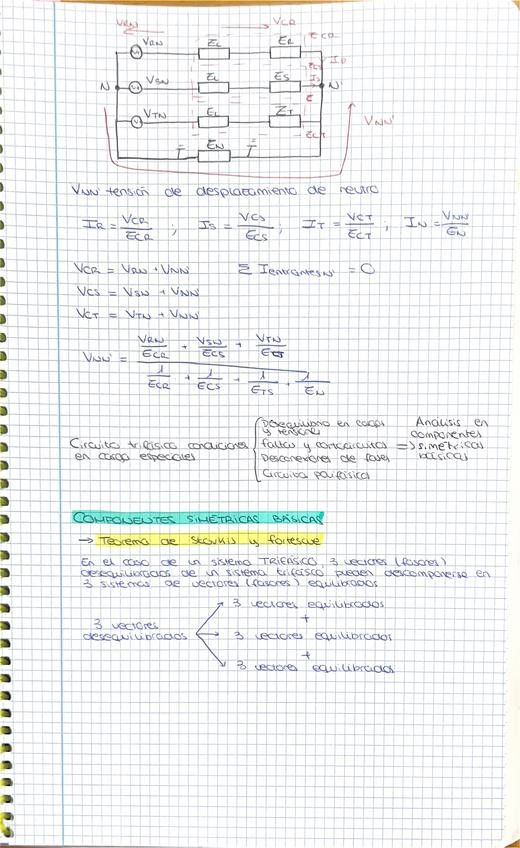 VRN VCR
VRN ZL ZR ZCR
IR
N VSN ZL ZS IS N'
VTN ZL ZT VNN'
ZCT
ZN
VNN' tensión de desplazamiento de neutro
IR = VCR/ZCR ; IS = VCS/ZCS ; IT = VCT/ZCT ; IN = VNN'/ZN
VCR = VRN + VNN' Σ Ientrantes N' = 0
VCS = VSN + VNN'
VCT = VTN + VNN'
VNN' = (VRN/ZCR + VSN/ZCS + VTN/ZCT) / (1/ZCR + 1/ZCS + 1/ZTS + 1/ZN)
Circuito trifásico condiciones en carga especiales
Desequilibrio en cargas y tensiones
fallos y cortocircuitos
Desconexiones de fases
Circuito polifásico
=> Análisis en componentes simétricas básicas
COMPONENTES SIMÉTRICAS BÁSICAS
→ Teorema de Stokvis y fortescue
En el caso de un sistema TRIFÁSICO, 3 vectores (fasores)
desequilibrados de un sistema trifásico pueden descomponerse en
3 sistemas de vectores (fasores) equilibrados
3 vectores desequilibrados
3 vectores equilibrados
+
3 vectores equilibrados
+
3 vectores equilibrados